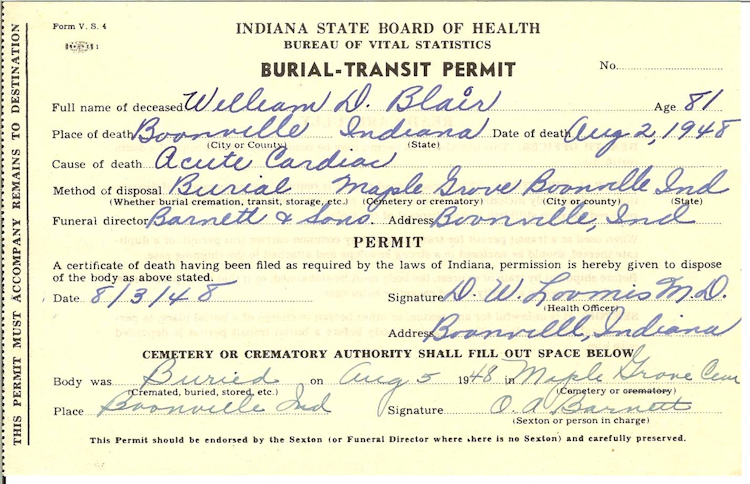 Form V. S. 4
INDIANA STATE BOARD OF HEALTH
BUREAU OF VITAL STATISTICS
BURIAL-TRANSIT PERMIT
No.
Full name of deceased William D. Blair Age 81
Place of death Boonville Indiana Date of death Aug 2, 1948
(City or County) (State)
Cause of death Acute Cardiac
Method of disposal Burial Maple Grove Boonville Ind
(Whether burial cremation, transit, storage, etc.) (Cemetery or crematory) (City or county) (State)
Funeral director Barnett & Sons. Address Boonville, Ind
PERMIT
A certificate of death having been filed as required by the laws of Indiana, permission is hereby given to dispose
of the body as above stated.
Date 8/3/48 Signature D. W. Loomis M.D.
(Health Officer)
Address Boonville, Indiana
CEMETERY OR CREMATORY AUTHORITY SHALL FILL OUT SPACE BELOW
Body was Buried on Aug 5 1948 in Maple Grove Cem
(Cremated, buried, stored, etc.) (Cemetery or crematory)
Place Boonville Ind Signature O. A. Barnett
(Sexton or person in charge)
This Permit should be endorsed by the Sexton (or Funeral Director where there is no Sexton) and carefully preserved.
THIS PERMIT MUST ACCOMPANY REMAINS TO DESTINATION